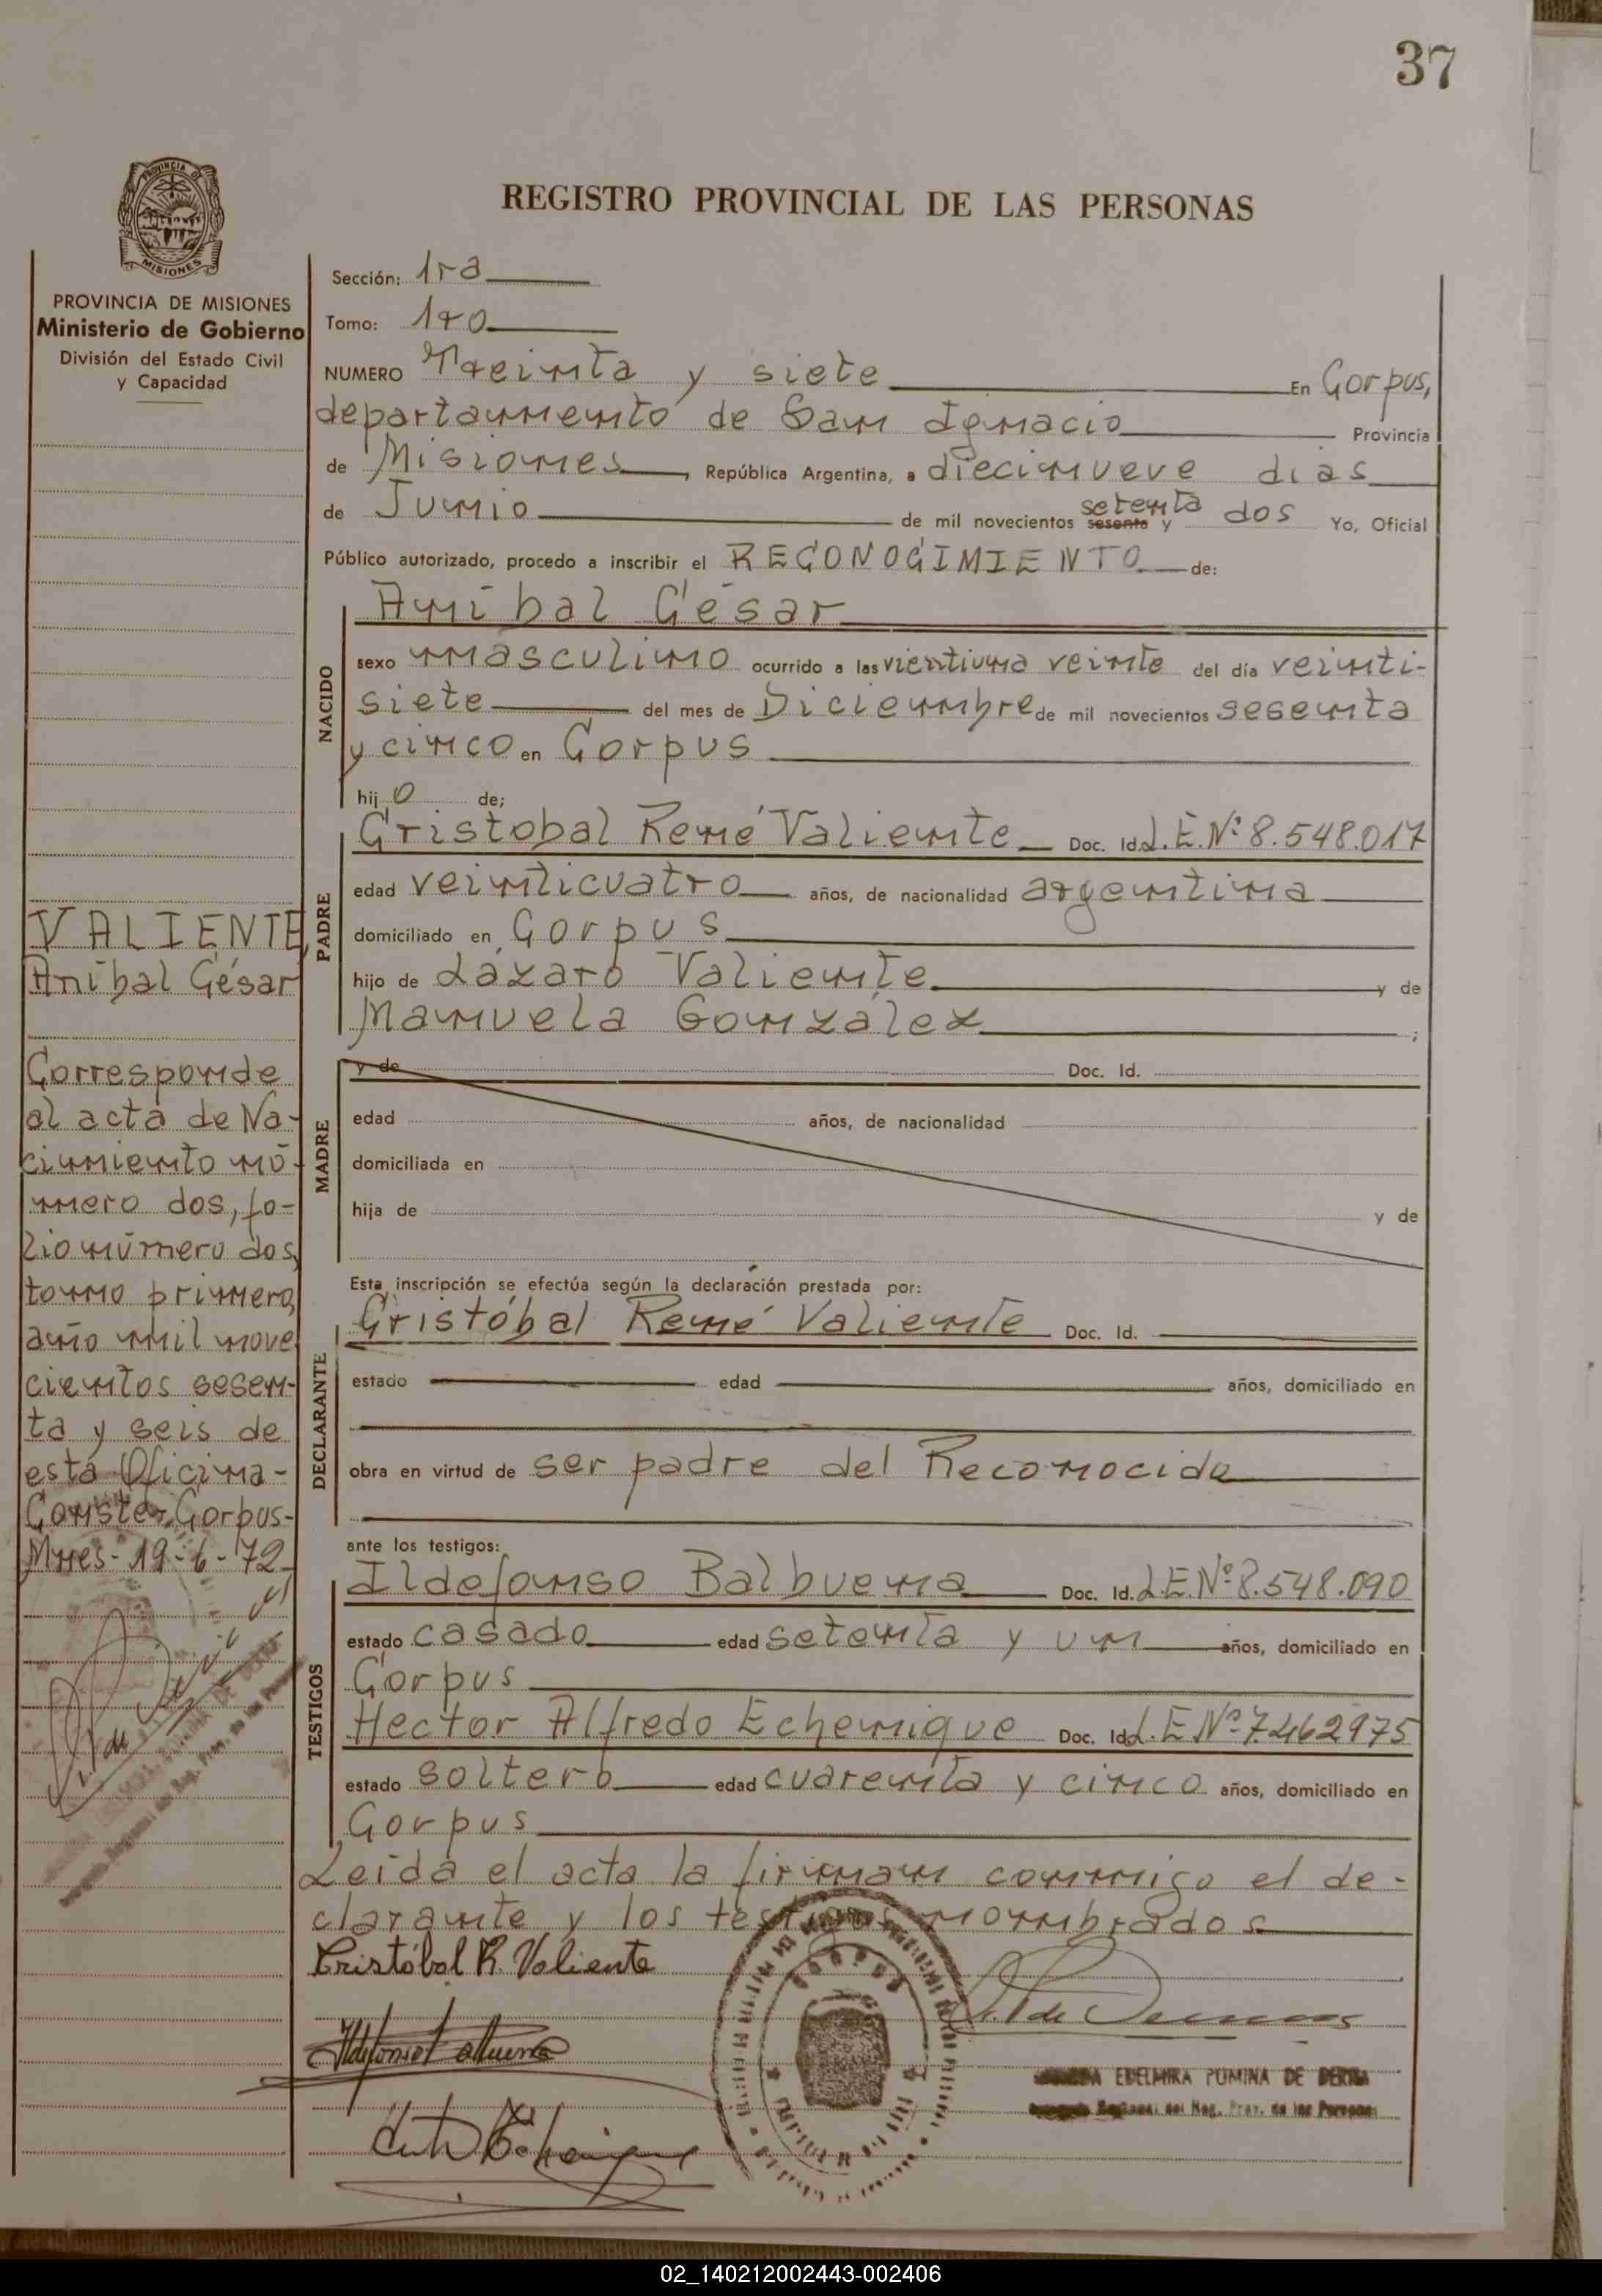 37
REGISTRO PROVINCIAL DE LAS PERSONAS
PROVINCIA DE MISIONES
Ministerio de Gobierno
División del Estado Civil
y Capacidad
Sección: 1ra
Tomo: 1ro
NUMERO Treinta y siete En Corpus,
departamento de San Ignacio Provincia
de Misiones, República Argentina, a diecinueve dias
de Junio de mil novecientos sesenta setenta y dos Yo, Oficial
Público autorizado, procedo a inscribir el RECONOCIMIENTO de:
NACIDO
Aníbal César
sexo masculino ocurrido a las vientiuna veinte del día veinti-
siete del mes de Diciembre de mil novecientos sesenta
y cinco en Corpus
hijo de;
PADRE
Cristobal René Valiente Doc. Id. L.E.Nº 8.548.017
edad veinticuatro años, de nacionalidad argentina
domiciliado en Corpus
hijo de Lázaro Valiente y de
Manuela González ;
MADRE
y de Doc. Id.
edad años, de nacionalidad
domiciliada en
hija de y de
Esta inscripción se efectúa según la declaración prestada por:
DECLARANTE
Cristóbal René Valiente Doc. Id.
estado edad años, domiciliado en
obra en virtud de ser padre del Reconocido
ante los testigos:
TESTIGOS
Ildefonso Balbuena Doc. Id. L.E.Nº 8.548.090
estado casado edad setenta y un años, domiciliado en
Corpus
Hector Alfredo Echenique Doc. Id. L.E Nº 7.462975
estado soltero edad cuarenta y cinco años, domiciliado en
Corpus
Leída el acta la firman conmigo el de-
clarante y los testigos nombrados
Cristóbal R. Valiente
EDELMIRA PUMINA DE
Reg. Prov. de las Personas
VALIENTE,
Aníbal César
Corresponde
al acta de Na-
cimiento nú-
mero dos, fo-
lio número dos,
tomo primero,
año mil nove
cientos sesen-
ta y seis de
está Oficina-
Conste, Corpus-
Mnes- 19-6-72
PROVINCIA DE
MISIONES
CORPUS
02_140212002443-002406